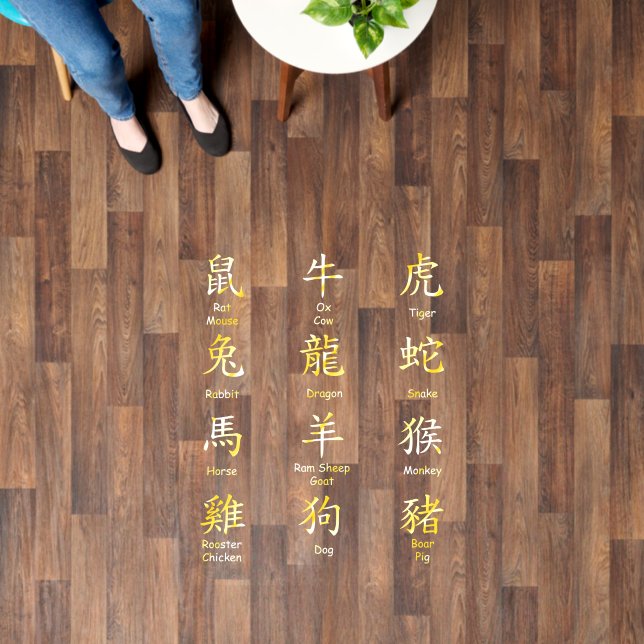 鼠 牛 虎
Rat Ox Tiger
Mouse Cow
兔 龍 蛇
Rabbit Dragon Snake
馬 羊 猴
Horse Ram Sheep Monkey
Goat
雞 狗 豬
Rooster Dog Boar
Chicken Pig